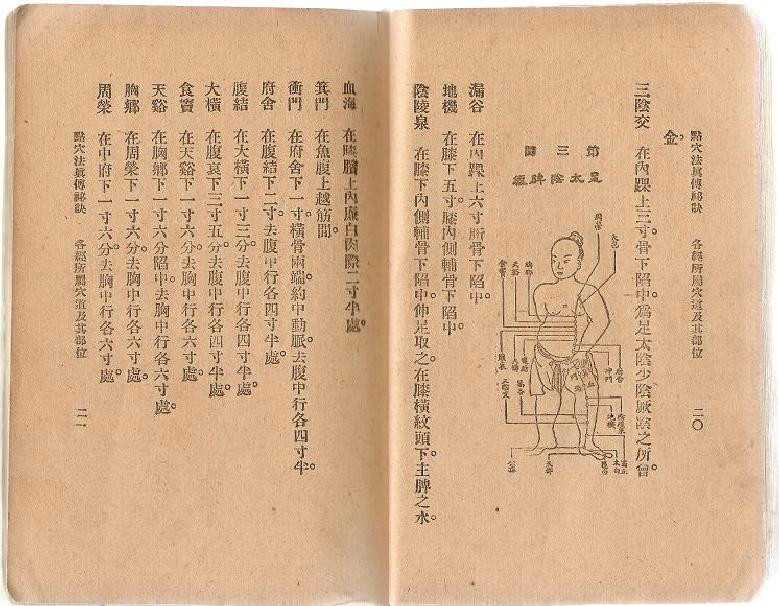 點穴法眞傳祕訣　各經所屬穴道及其部位　二〇
金。
三陰交　在內踝上三寸。骨下陷中。為足太陰少陰厥陰之所會。
第三圖
足太陰脾經
周榮
大包
胸鄉
天谿
食竇
腹哀
大橫
腹結
府舍
衝門
箕門
血海
三陰交
漏谷
地機
陰陵泉
公孫
太都
隱白
太白
商丘
漏谷　在內踝上六寸。胻骨下陷中。
地機　在膝下五寸。膝內側輔骨下陷中。
陰陵泉　在膝下內側輔骨下陷中。伸足取之。在膝橫紋頭下。主脾之水。
血海　在膝臏上內廉白肉際二寸半處。
箕門　在魚腹上越筋間。
衝門　在府舍下一寸。橫骨兩端約中動脈。去腹中行各四寸半。
府舍　在腹結下二寸。去腹中行各四寸半處。
腹結　在大橫下一寸三分。去腹中行各四寸半處。
大橫　在腹哀下三寸五分。去腹中行各四寸半處。
食竇　在天谿下一寸六分。去胸中行各六寸處。
天谿　在胸鄉下一寸六分陷中。去胸中行各六寸處。
胸鄉　在周榮下一寸六分。去胸中行各六寸處。
周榮　在中府下一寸六分。去胸中行各六寸處。
點穴法眞傳祕訣　各經所屬穴道及其部位　二一